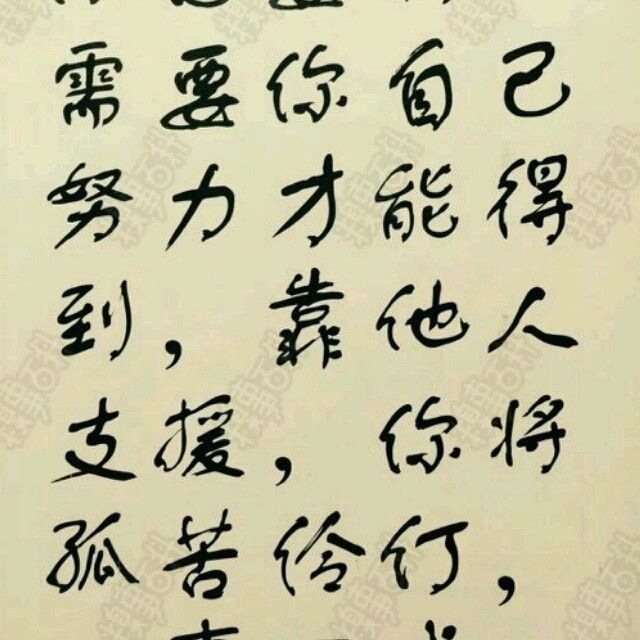 需要你自己
努力才能得
到，靠他人
支援，你将
孤苦伶仃，